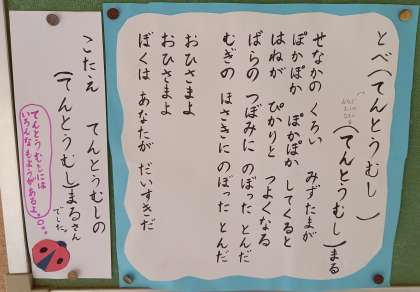 とべ（てんとうむし　）
（てんとうむし）まる
せなかの くろい みずたまが
ぽかぽか ぽかぽか してくると
はねが ぴかりと つよくなる
ばらの つぼみに のぼった とんだ
むぎの ほさきに のぼった とんだ
おひさまよ
おひさまよ
ぼくは あなたが だいすきだ
こたえ てんとうむしの
（てんとうむし）まるさん
でした。
てんとうむしには
いろんなもようがあるよ。